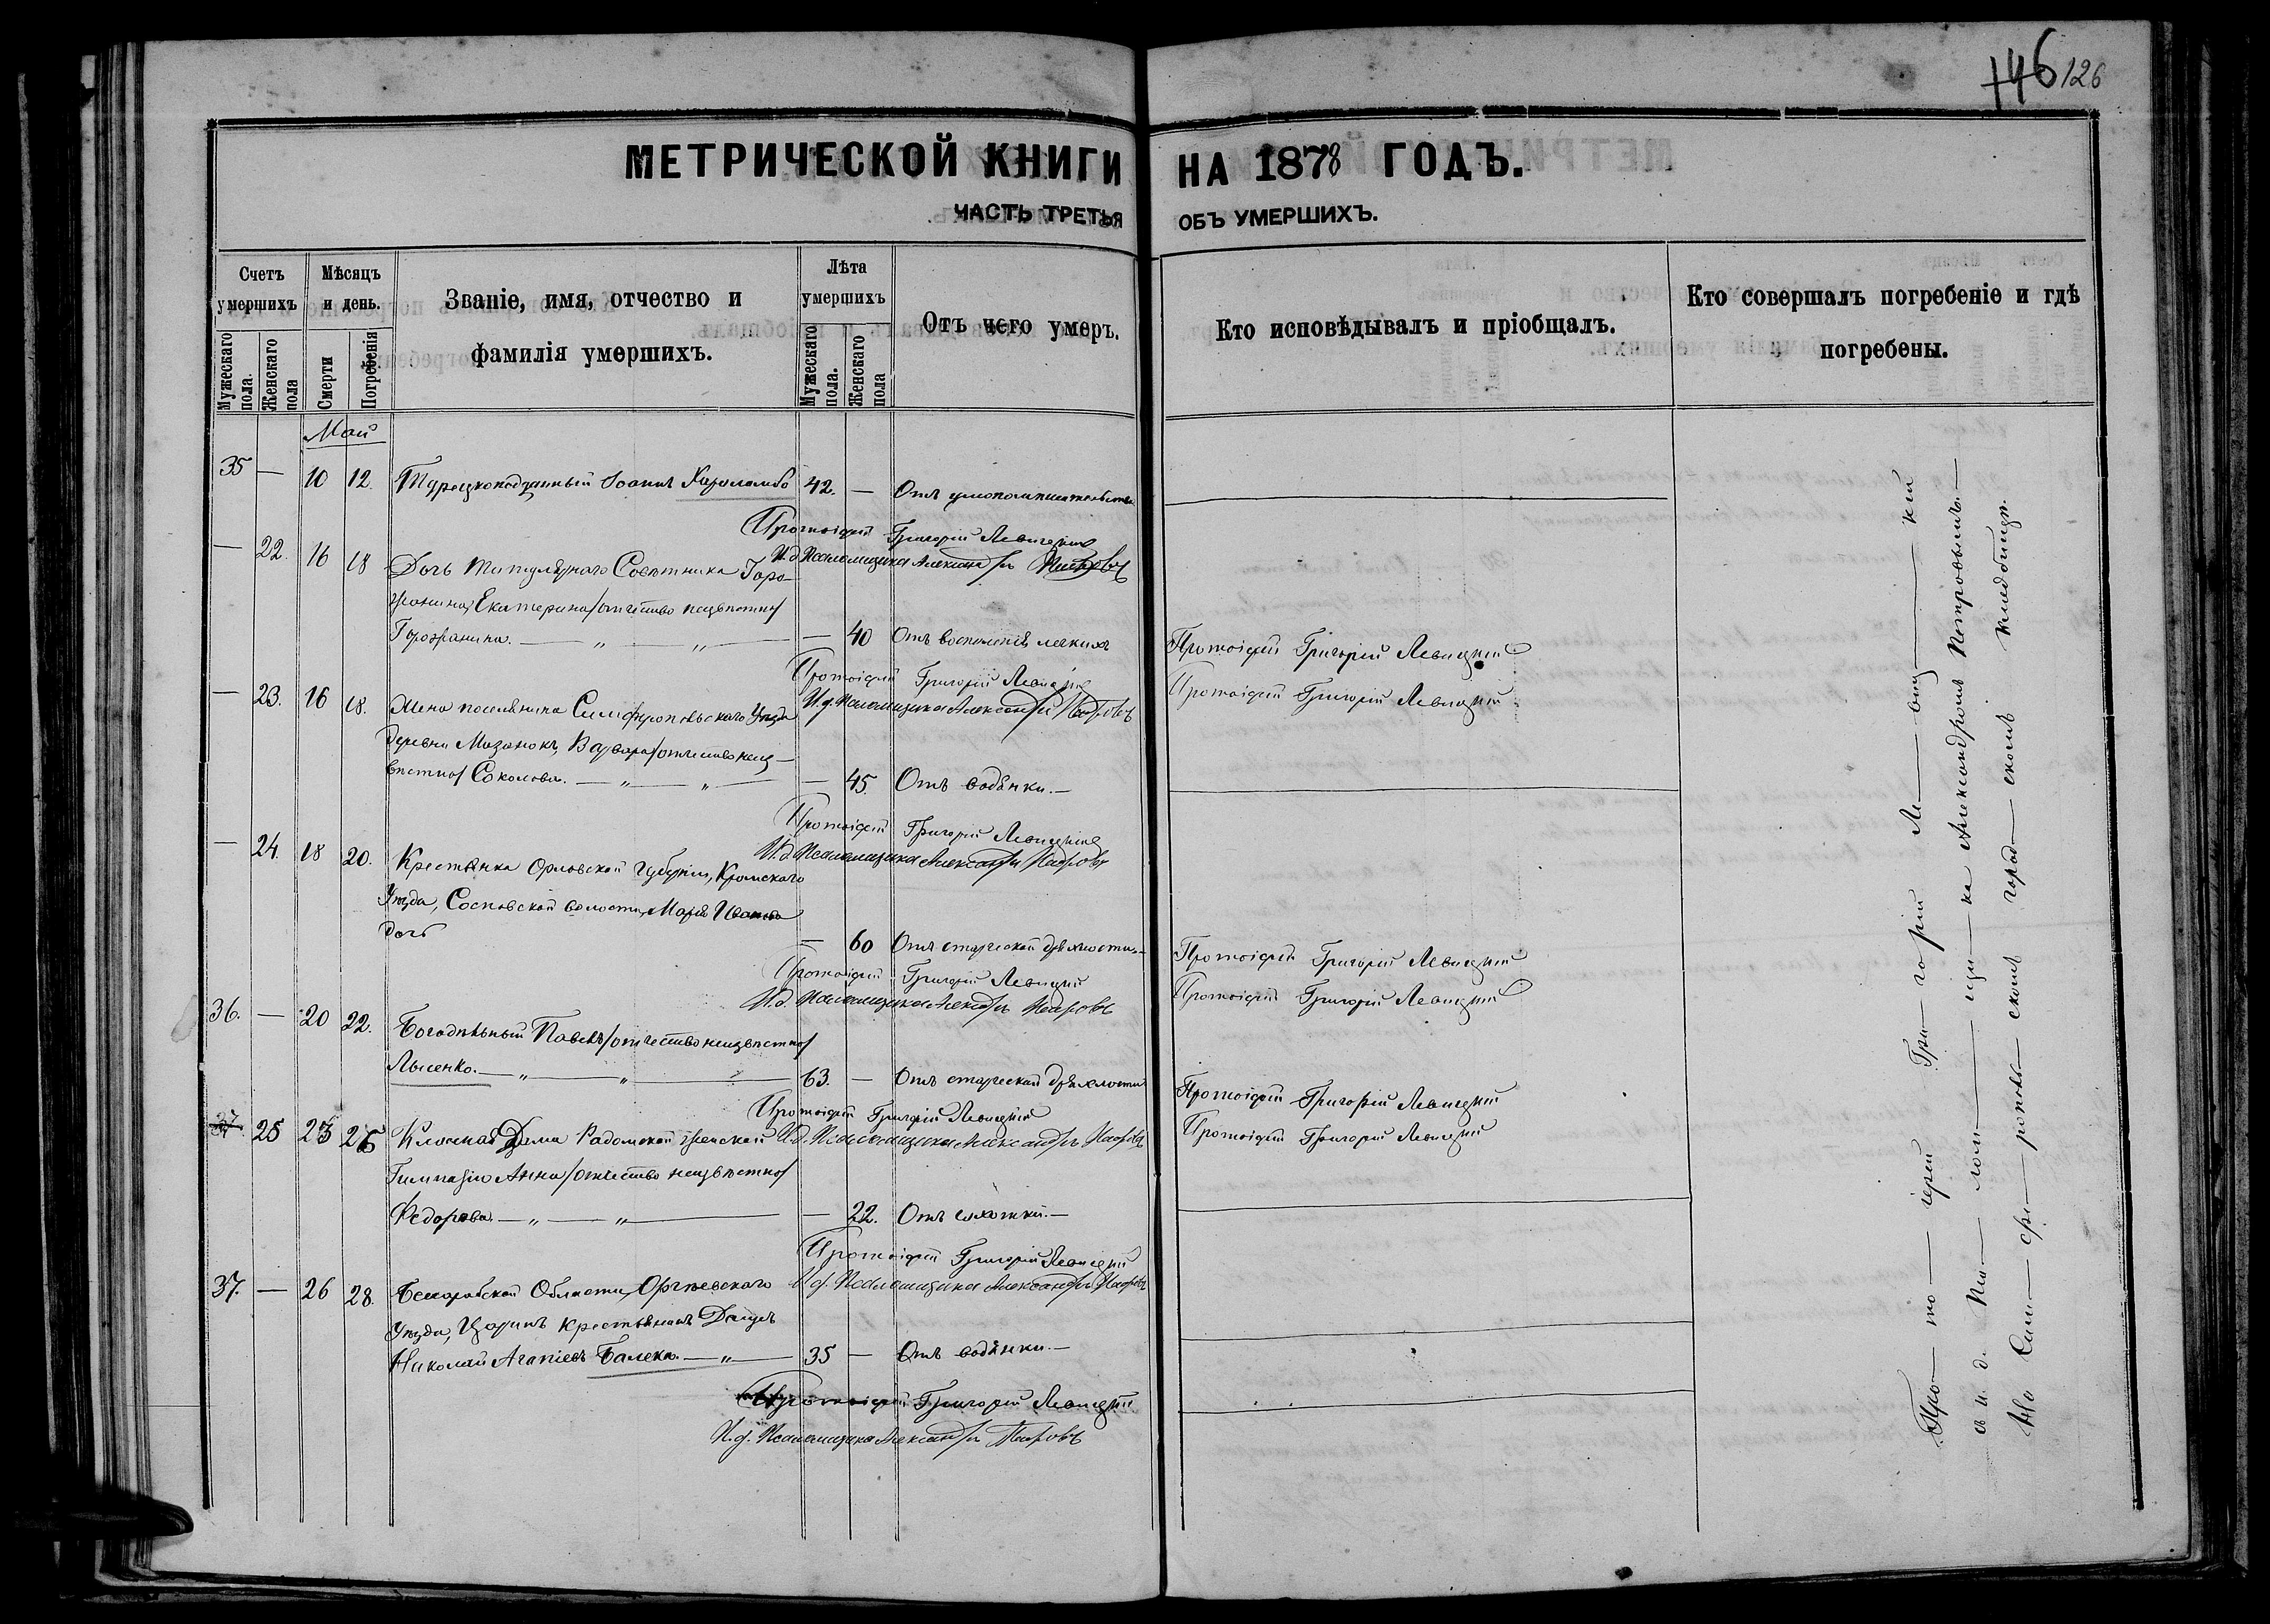 146 126
МЕТРИЧЕСКОЙ КНИГИ НА 1878 ГОДЪ.
ЧАСТЬ ТРЕТЬЯ ОБЪ УМЕРШИХЪ.
Счетъ умершихъ
Мужескаго пола.
Женскаго пола
Мѣсяцъ и день.
Смерти
Погребенія
Званіе, имя, отчество и
фамилія умершихъ.
Лѣта умершихъ
Мужескаго пола.
Женскаго пола
Отъ чего умеръ.
Кто исповѣдывалъ и пріобщалъ.
Кто совершалъ погребеніе и гдѣ
погребены.
Май
35 — 10 12. Турецкоподданный Іоаннъ Хараламбо 42. — Отъ умопомѣшательства
Протоіерей Григорій Левицкій
И. д. Псаломщика Александръ Петровъ
— 22. 16 18 Дочь Титулярнаго Совѣтника Горо-
жанина, Екатерина /отчество неизвѣстно/
Горожанина. — „ — „ — — 40 Отъ воспаленія легкихъ
Протоіерей Григорій Левицкій
Протоіерей Григорій Левицкій
И. д. Псаломщика Александръ Петровъ
Протоіерей Григорій Левицкій
— 23. 16 18. Жена поселянина Симферопольскаго Уѣзда
деревни Мазанокъ, Варвара /отчество неиз-
вѣстно/ Соколова. — „ — „ — — 45. Отъ водянки. —
Протоіерей Григорій Левицкій
И. д. Псаломщика Александръ Петровъ
— 24. 18 20. Крестьянка Орловской Губерніи, Кромскаго
Уѣзда, Сосновской волости, Марія Иванова
дочь — 60 Отъ старческой дряхлости. —
Протоіерей Григорій Левицкій
Протоіерей Григорій Левицкій
И. д. Псаломщика Александръ Петровъ
Протоіерей Григорій Левицкій
36. — 20 22. Богодѣльный Павелъ /отчество неизвѣстно/
Лысенко. — „ — „ — 63. — Отъ старческой дряхлости
Протоіерей Григорій Левицкій
Протоіерей Григорій Левицкій
И. д. Псаломщика Александръ Петровъ
Протоіерей Григорій Левицкій
37 25 23 25 Классная Дама Радомской женской
Гимназіи Анна /отчество неизвѣстно/
Федорова. — „ — „ — — 22. Отъ чахотки. —
Протоіерей Григорій Левицкій
И. д. Псаломщика Александръ Петровъ
37. — 26 28. Бессарабской Области, Оргѣевскаго
Уѣзда, Царанъ крестьянинъ
Николай Агапіевъ Балека. — „ — 35 — Отъ водянки. —
Протоіерей Григорій Левицкій
И. д. Псаломщика Александръ Петровъ
Про— то— іерей Гри— горій Ле— виц— кій
съ и. д. Пса— лом— щи— ка Александромъ Петровымъ. —
На Сим— фе— рополь— скомъ город— скомъ кладбищѣ.